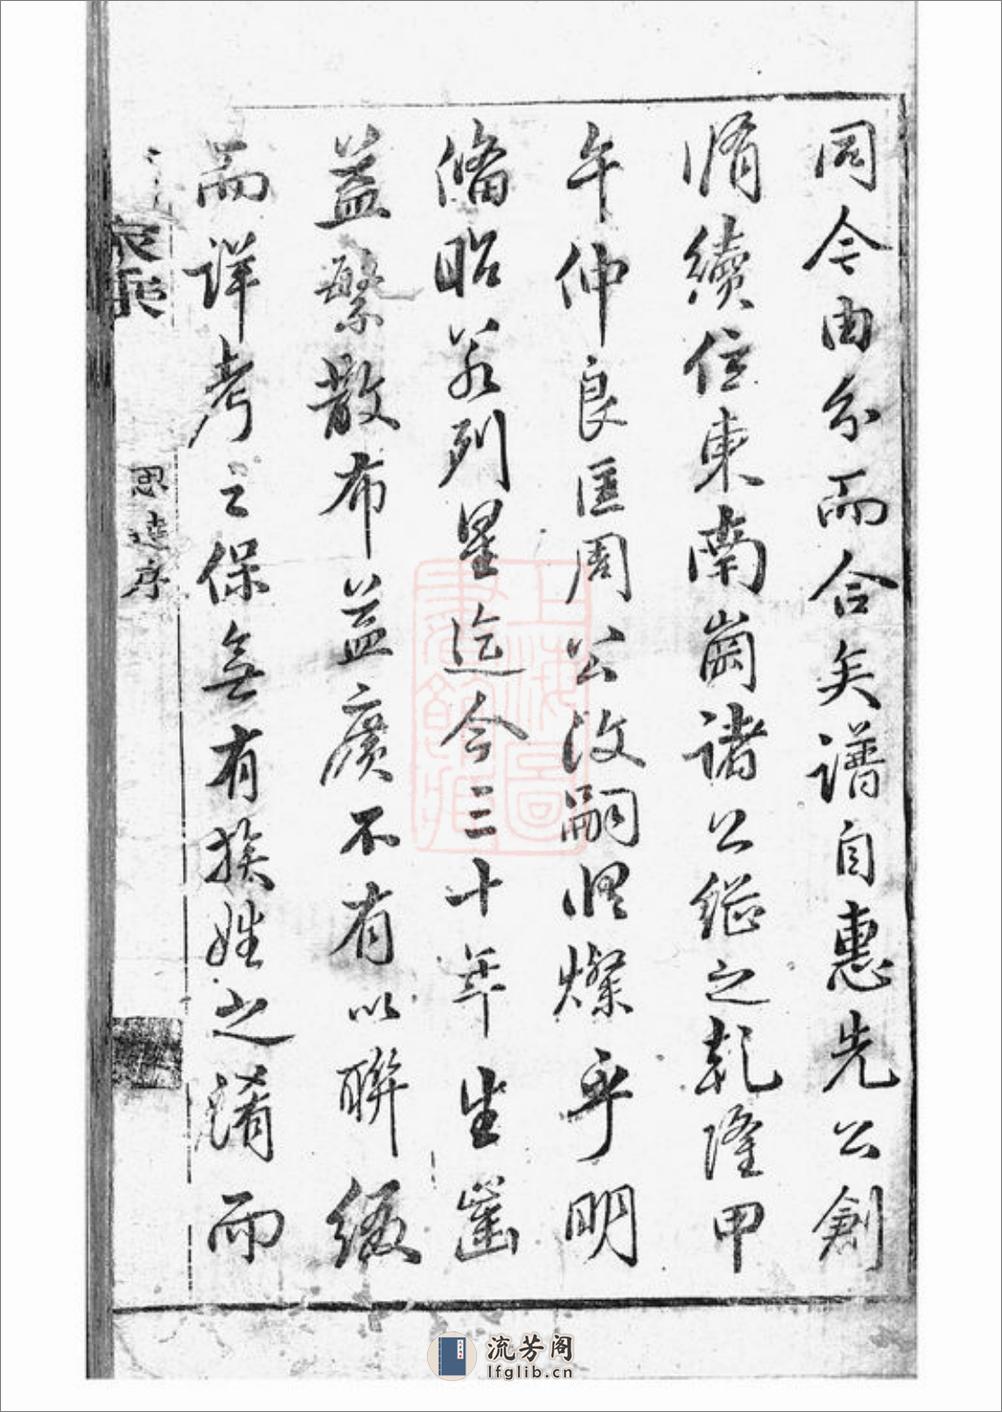 同今由分而合矣譜自惠先公創
脩續位東南崗諸公繼之乾隆甲
午仲良匡周公汝嗣脩燦乎明
備昭若列星迄今三十年生齒
益繁散布益廣不有以聯綴
而詳考之保無有族姓之淆而
思遠序
上海圖書館藏
流芳阁
lfglib.cn